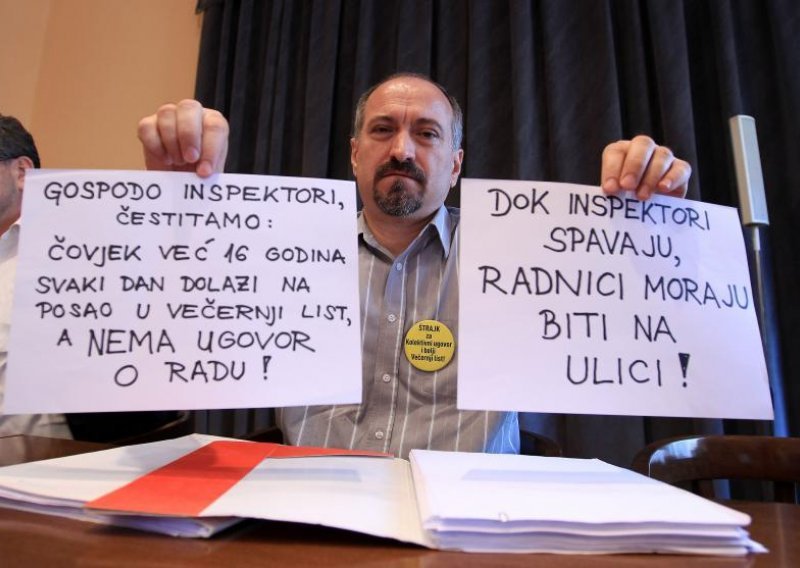 GOSPODO INSPEKTORI,
ČESTITAMO:
ČOVJEK VEĆ 16 GODINA
SVAKI DAN DOLAZI NA
POSAO U VEČERNJI LIST,
A NEMA UGOVOR
O RADU!
DOK INSPEKTORI
SPAVAJU,
RADNICI MORAJU
BITI NA
ULICI!
STRAJK
za
Kolektivni ugovor
i bolji
Večernji list!